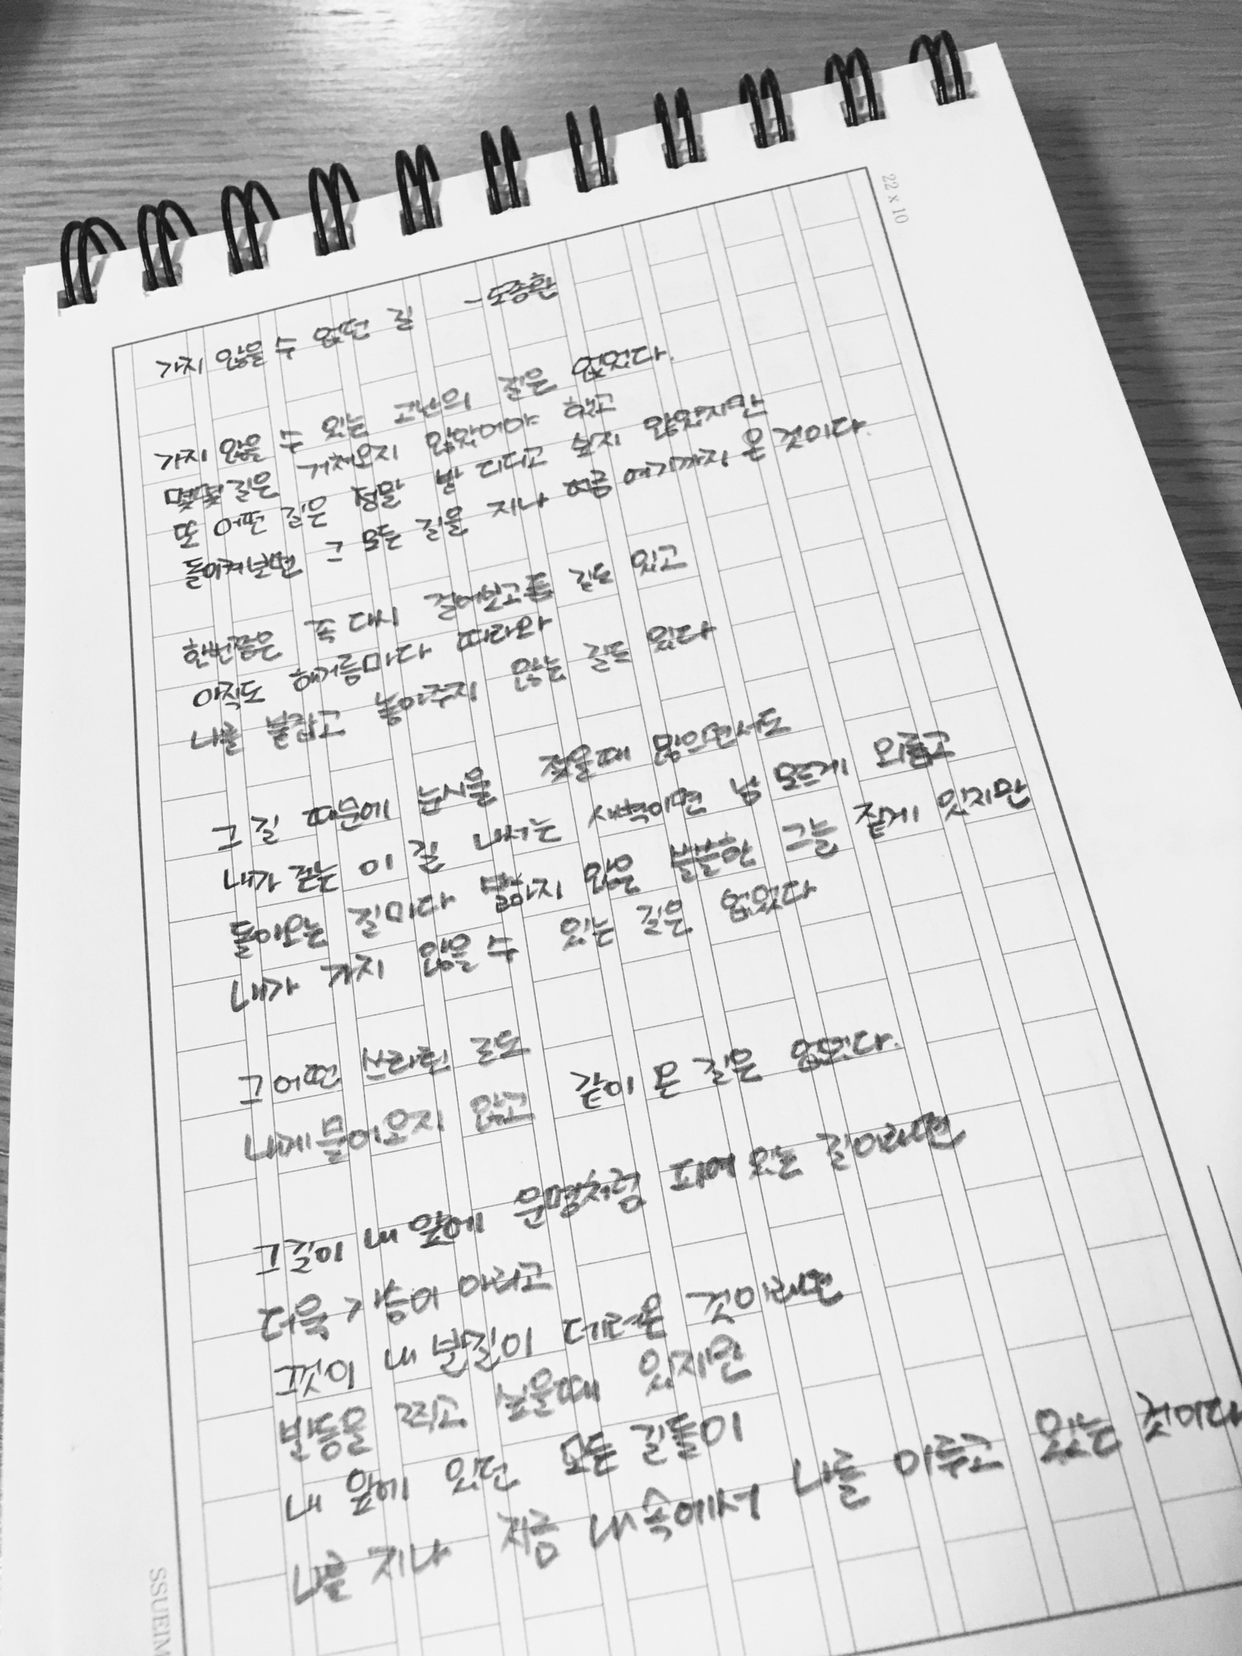 22 x 10
가지 않을 수 없던 길 - 도종환
가지 않을 수 있는 고난의 길은 없었다.
몇몇 길은 거쳐오지 않았어야 했고
또 어떤 길은 정말 발 디디고 싶지 않았지만
돌이켜보면 그 모든 길을 지나 여기까지 온 것이다.
한번쯤은 꼭 다시 걸어보고픈 길도 있고
아직도 해거름마다 따라와
나를 붙잡고 놓아주지 않는 길도 있다
그 길 때문에 눈시울 젖을때 많으면서도
내가 걷는 이 길 나서는 새벽이면 남 모르게 외롭고
돌아오는 길마다 말하지 않은 쓸쓸한 그늘 짙게 있지만
내가 가지 않을 수 있는 길은 없었다
그 어떤 쓰라린 길도
내게 물어오지 않고 같이 온 길은 없었다.
그 길이 내 앞에 운명처럼 패여 있는 길이라면
더욱 가슴이 아리고
그것이 내 발길이 데려온 것이라면
발등을 찍고 싶을때 있지만
내 앞에 있던 모든 길들이
나를 지나 지금 내 속에서 나를 이루고 있는 것이다